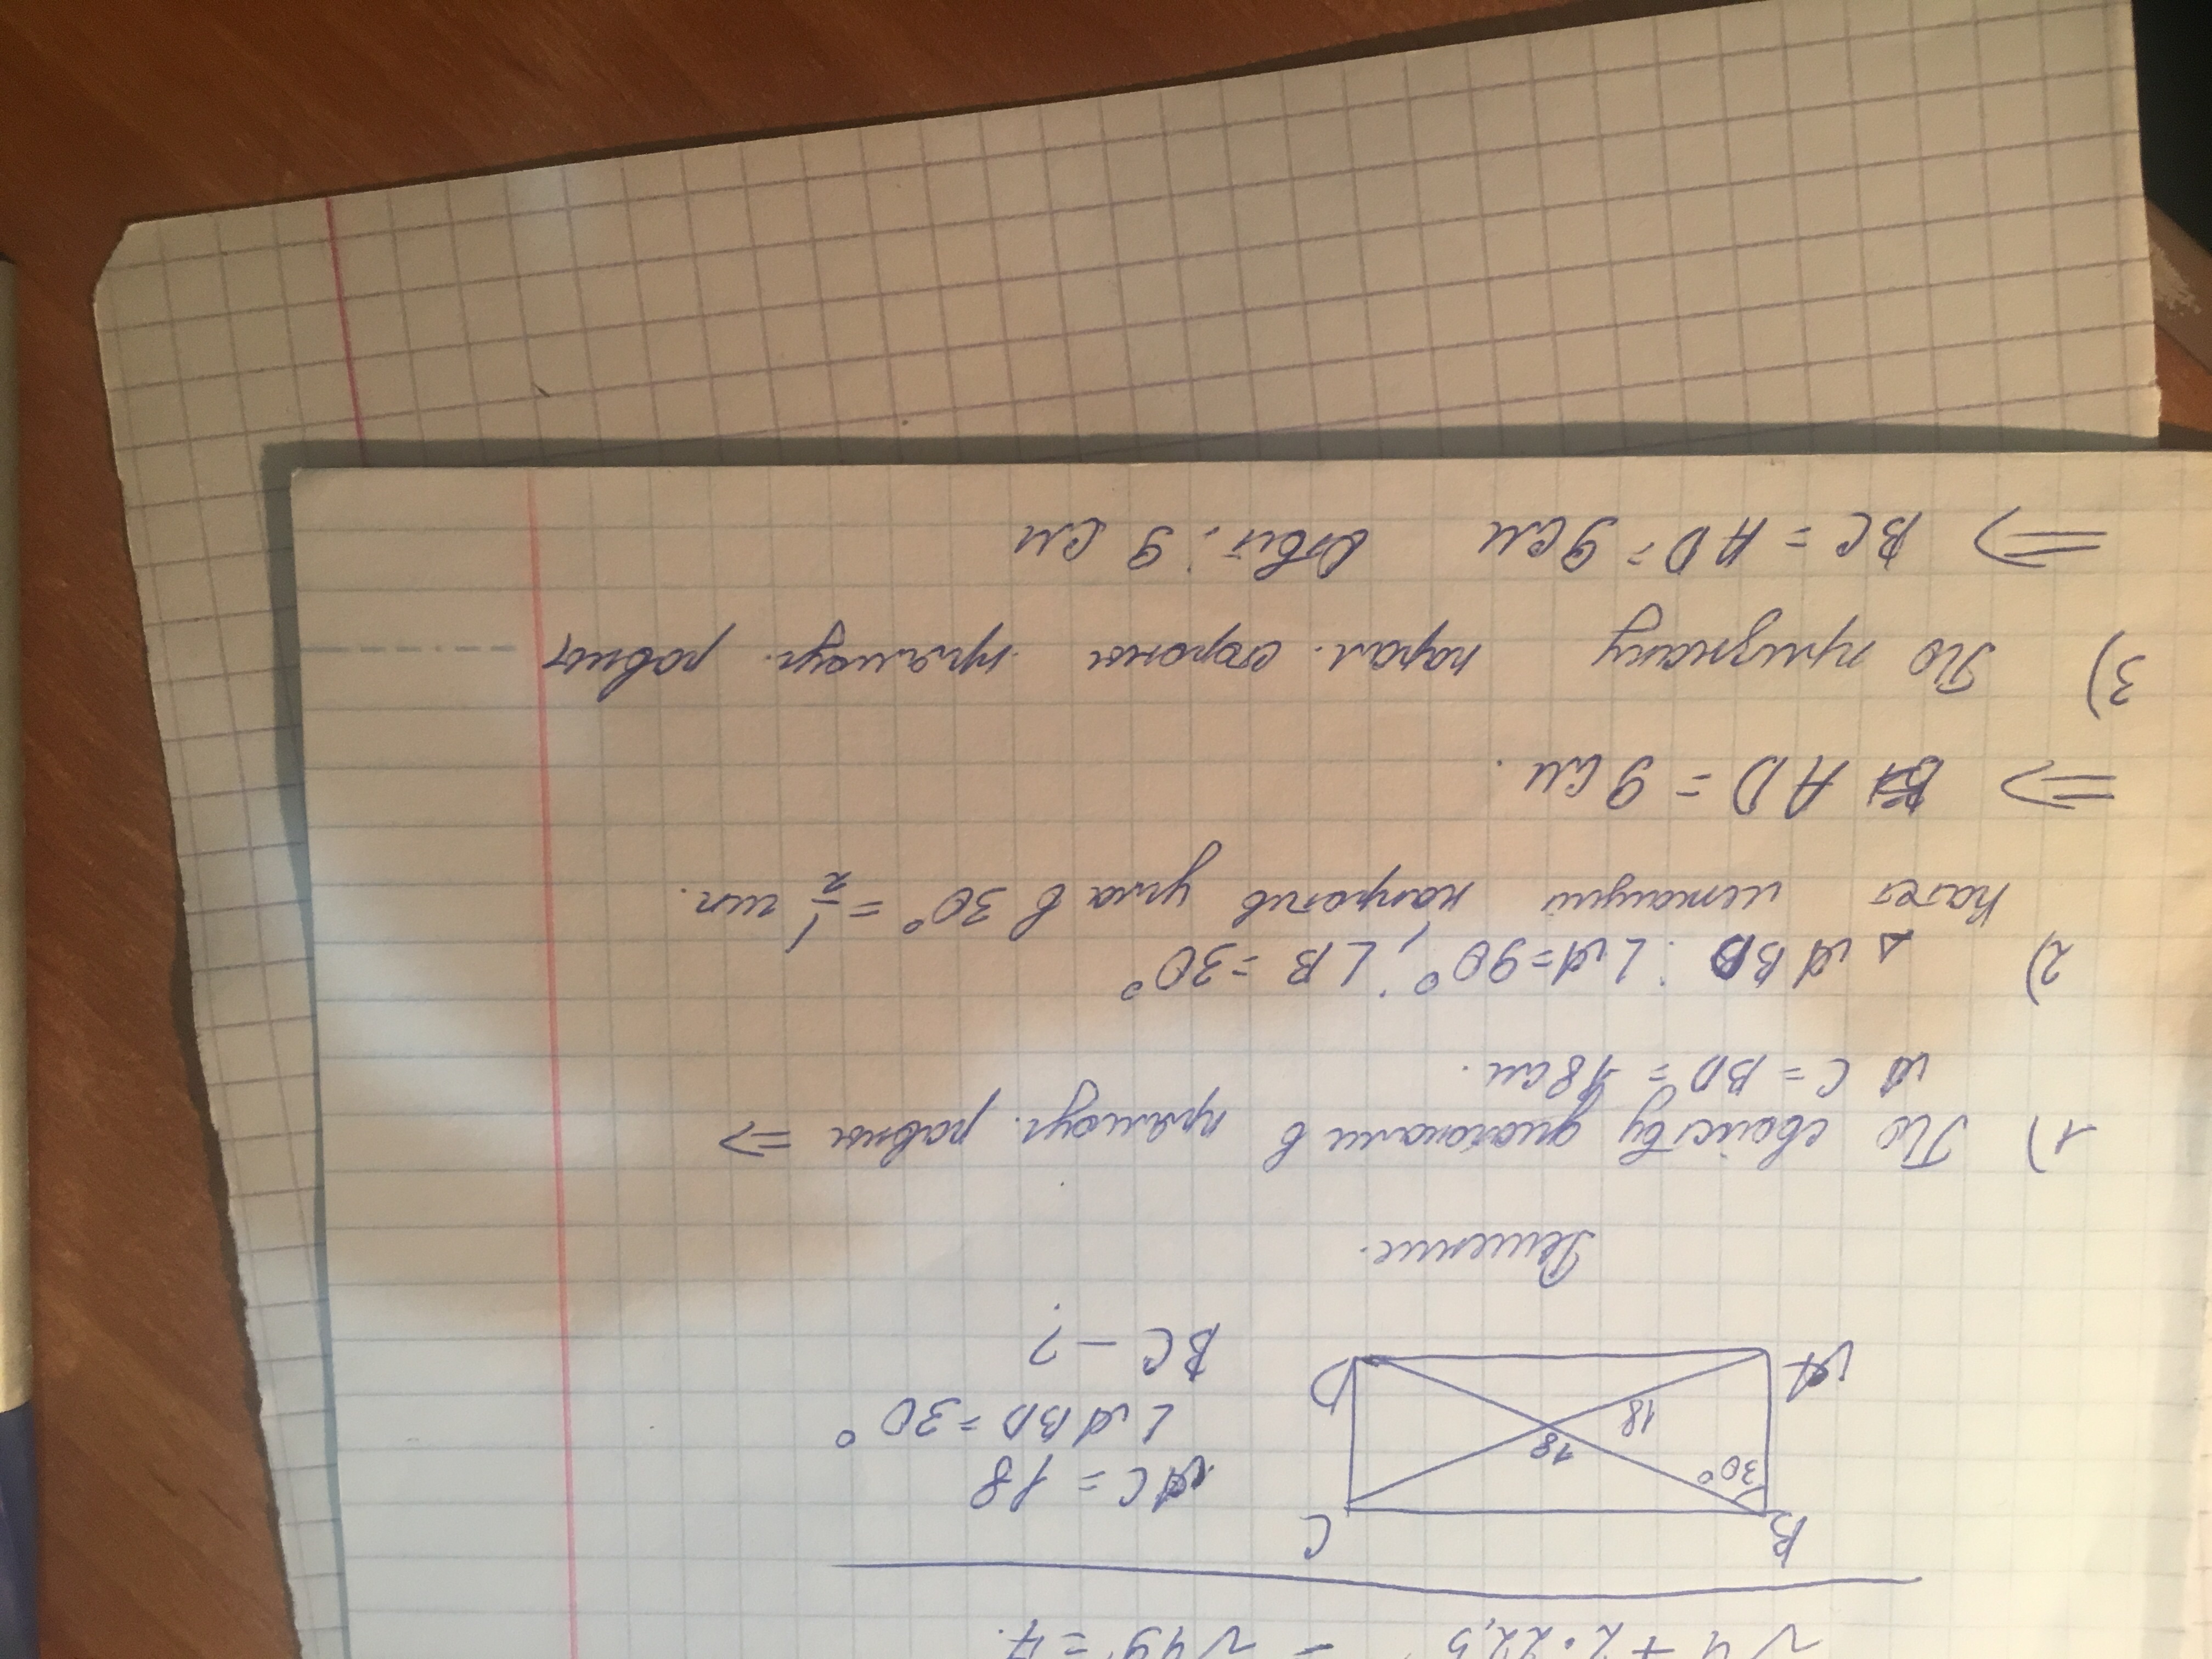 √4 + 2·22,5 = √49 = 7.
B C
30° 18 18
A D
AC = 18
∠ABD = 30°
BC – ?
Решение.
1) По свойству диагонали в прямоуг. равны ⇒
AC = BD = 18 см.
2) △ABD: ∠A = 90°; ∠B = 30°
Катет лежащий напротив угла в 30° = 1/2 гип.
⇒ AD = 9 см.
3) По признаку парал. стороны прямоуг. равны
⇒ BC = AD = 9 см Ответ: 9 см